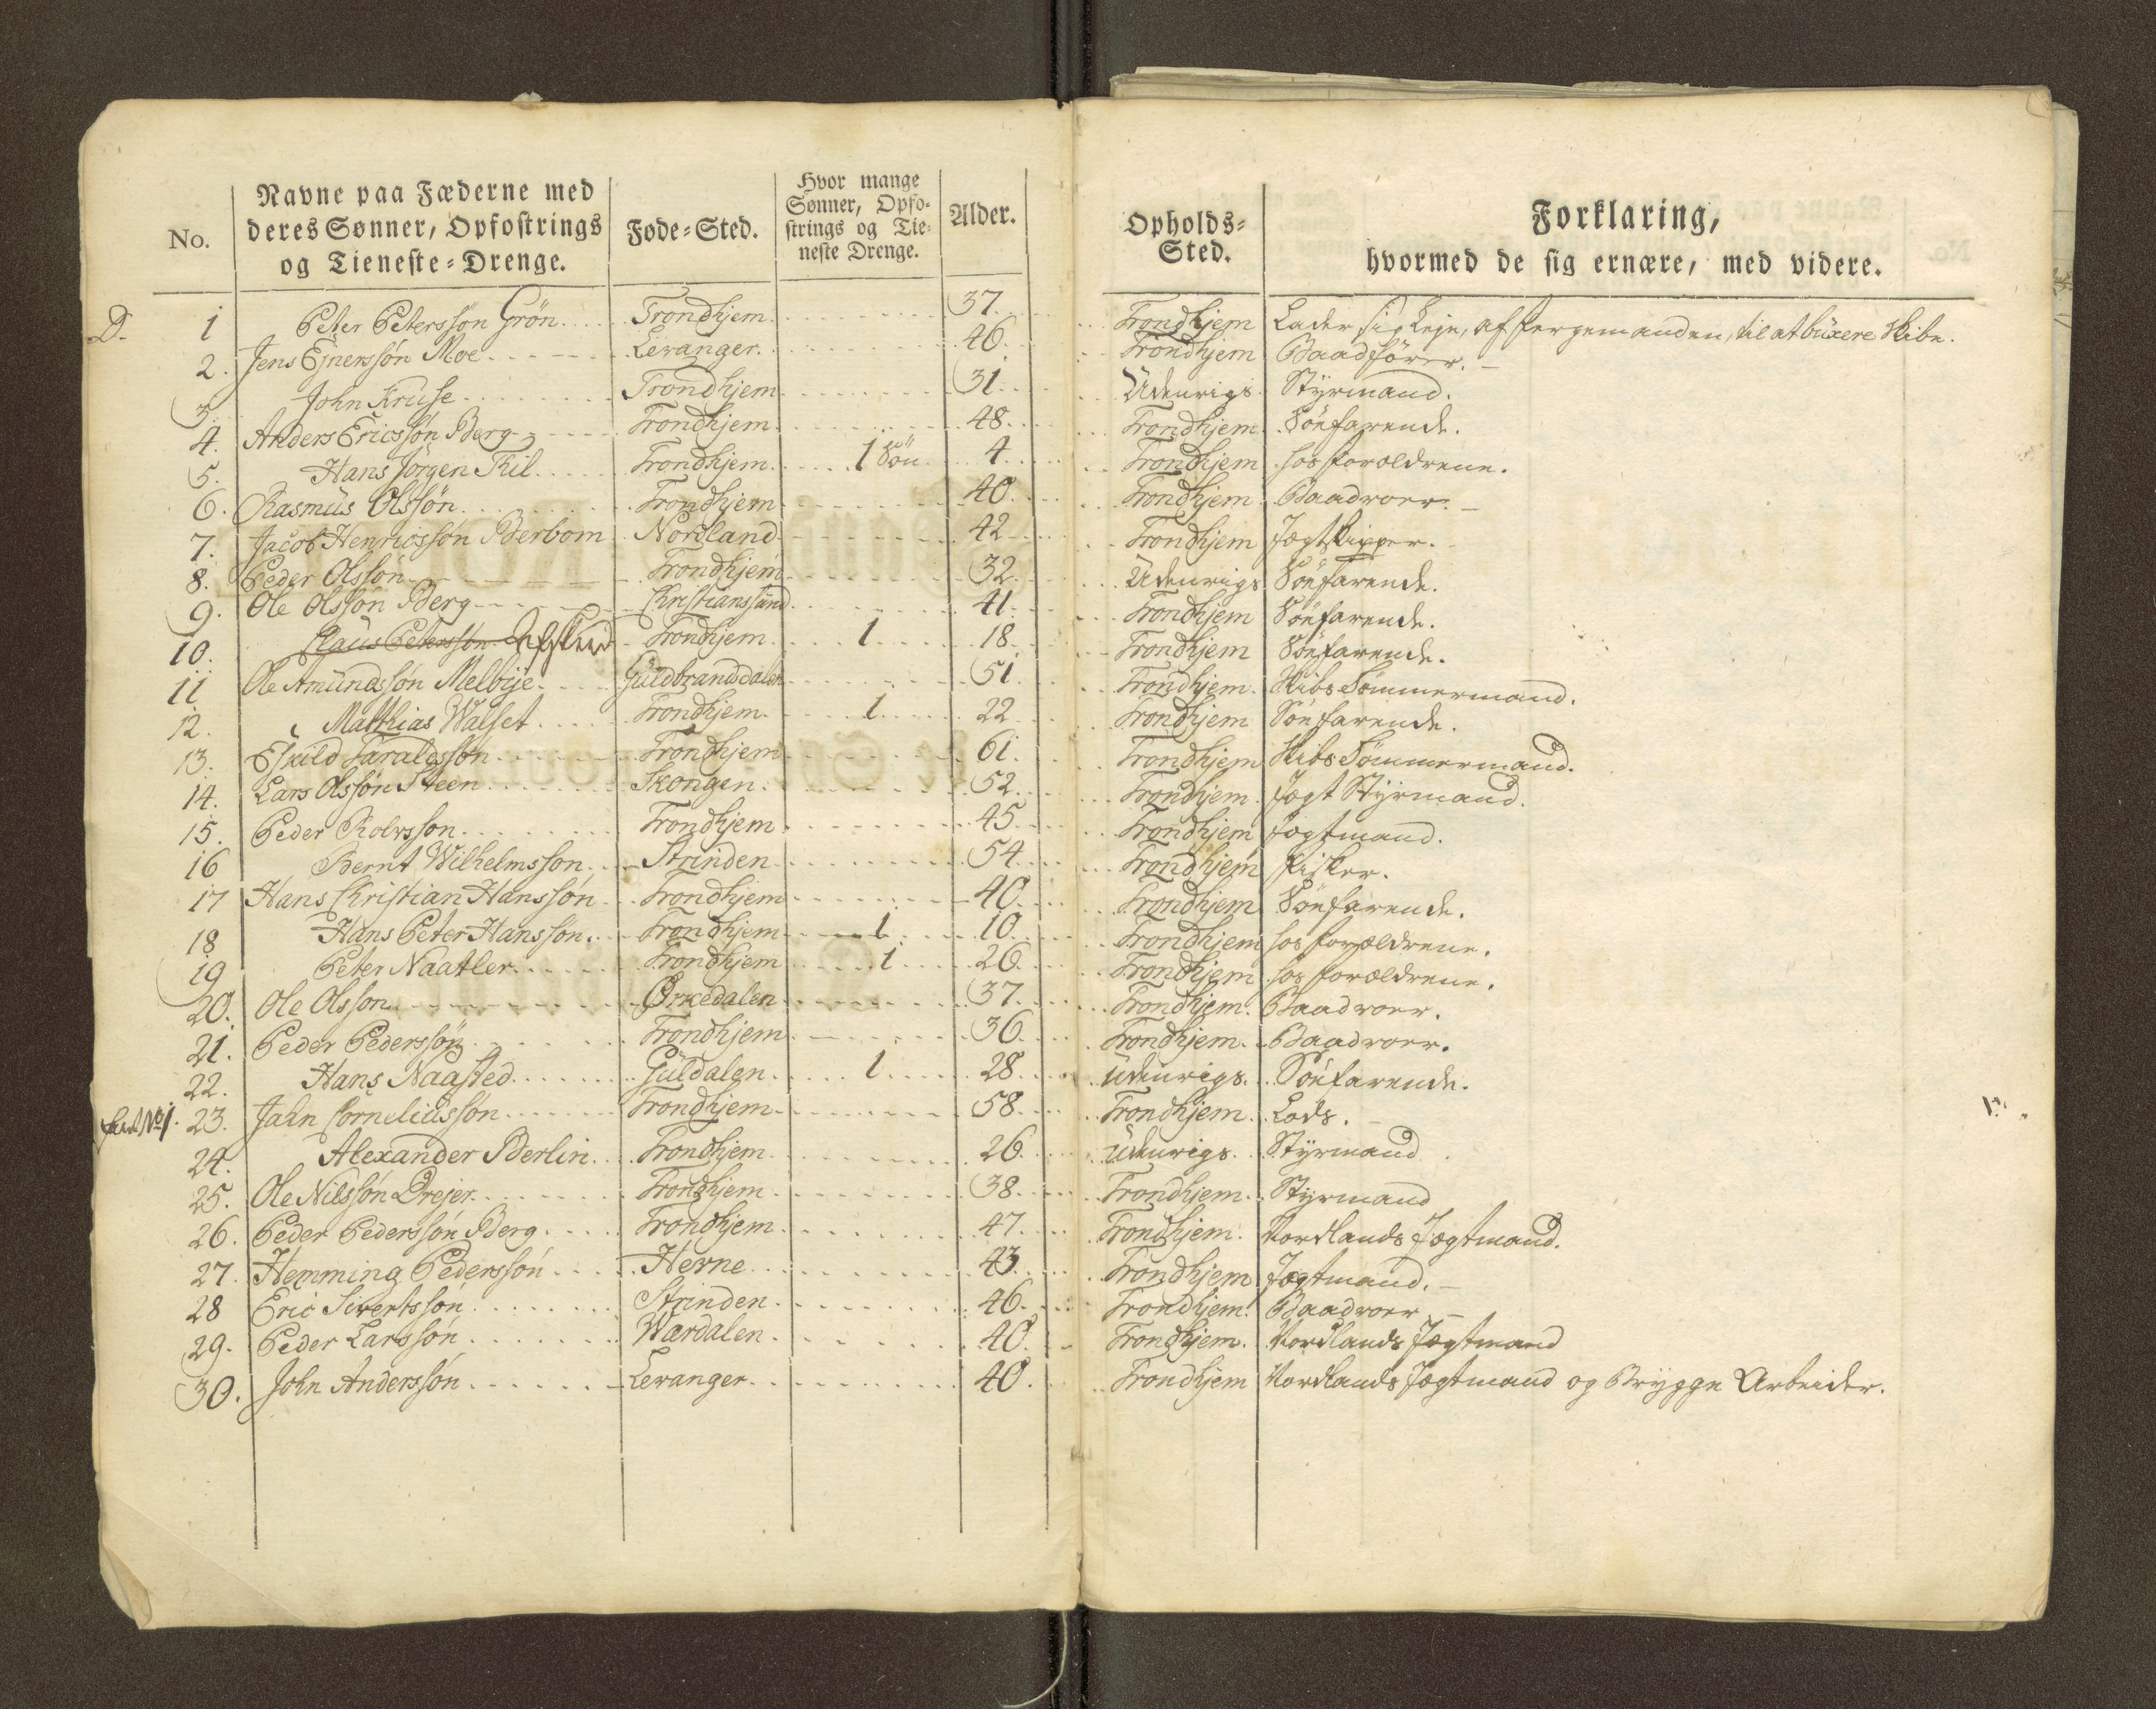 No. Navne paa Fæderne med deres Sønner, Opfostrings og Tieneste-Drenge. Føde-Sted. Hvor mange Sønner, Opfostrings og Tieneste Drenge. Alder. Opholds-Sted. Forklaring, hvormed de sig ernære, med videre.
D. 1 Peter Peterssøn Grön Trondhjem 37. Trondhjem Lader sig leje, af fergemanden, til at buxere Skibe.
2. Jens Ejnerssøn Moe Levanger. 46 Trondhjem Baadfører.
3. John Kruse Trondhjem 31. Udenrigs Styrmand.
4. Anders Ericssøn Berg Trondhjem 48. Trondhjem Söefarende.
5. Hans Jörgen Kil Trondhjem 1 Sön 4 Trondhjem hos forældrene.
6. Rasmus Olssøn Trondhjem 40. Trondhjem Baadroer.
7. Jacob Henricssøn Berbom Nordland 42 Trondhjem Jægtskipper.
8. Peder Olssøn Trondhjem 32 Udenrigs Söefarende.
9. Ole Olssøn Berg Christianssund 41. Trondhjem Söefarende.
10. Claus Peterssøn Afskeed Trondhjem 1 18 Trondhjem Söefarende.
11 Ole Amundssøn Melbije Guldbrandsdalen 51 Trondhjem. Skibs Tömmermand.
12. Matthias Walset Trondhjem 1 22 Trondhjem Söefarende.
13. Eskild Haraldssøn Trondhjem 61. Trondhjem Skibs Tömmermand.
14. Lars Olssøn Steen Skongen 52 Trondhjem. Jægt Styrmand.
15. Peder Rolvssøn Trondhjem 45 Trondhjem Jægtmand.
16 Bernt Wilhelmssøn Strinden 54 Trondhjem Fisker.
17 Hans Christian Hanssøn Trondhjem 40. Trondhjem Söefarende.
18 Hans Peter Hanssøn. Trondhjem 1 10 Trondhjem hos forældrene.
19 Peter Naatler Trondhjem 1 26 Trondhjem hos forældrene.
20. Ole Olssøn Orkedalen 37. Trondhjem. Baadroer.
21. Peder Pederssøn Trondhjem 36. Trondhjem. Baadroer.
22. Hans Naasted Guldalen 1 28. Udenrigs. Söefarende.
No 1. 23. Jahn Corneliussøn Trondhjem 58. Trondhjem Lods.
24. Alexander Berlin Trondhjem 26. Udenrigs. Styrmand
25. Ole Nilssøn Drejer Trondhjem 38. Trondhjem. Styrmand
26. Peder Pederssøn Berg Trondhjem 47. Trondhjem. Nordlands Jægtmand.
27. Hemming Pederssøn Hevne 43. Trondhjem Jægtmand.
28 Eric Sivertssøn Strinden 46. Trondhjem. Baadroer
29. Peder Larssøn Wardalen 40. Trondhjem. Nordlands Jægtmand
30. John Anderssøn Levanger 40. Trondhjem Nordlands Jægtmand og Brygge Arbeider.